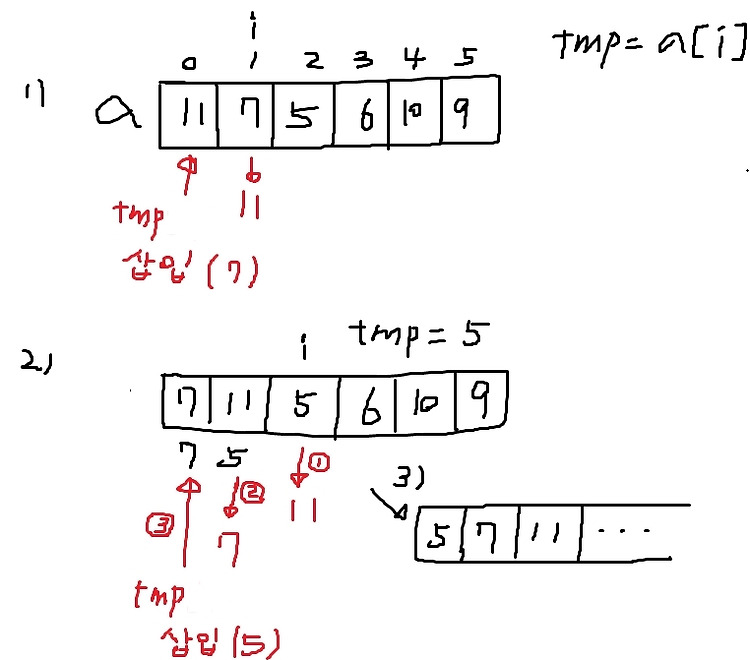 i
0 1 2 3 4 5
tmp = a[i]
1) a 11 7 5 6 10 9
11
tmp
삽입 (7)
2) i tmp = 5
7 11 5 6 10 9
7 5 ①
③ ② 11
7
tmp
삽입 (5)
3)
5 7 11 ...